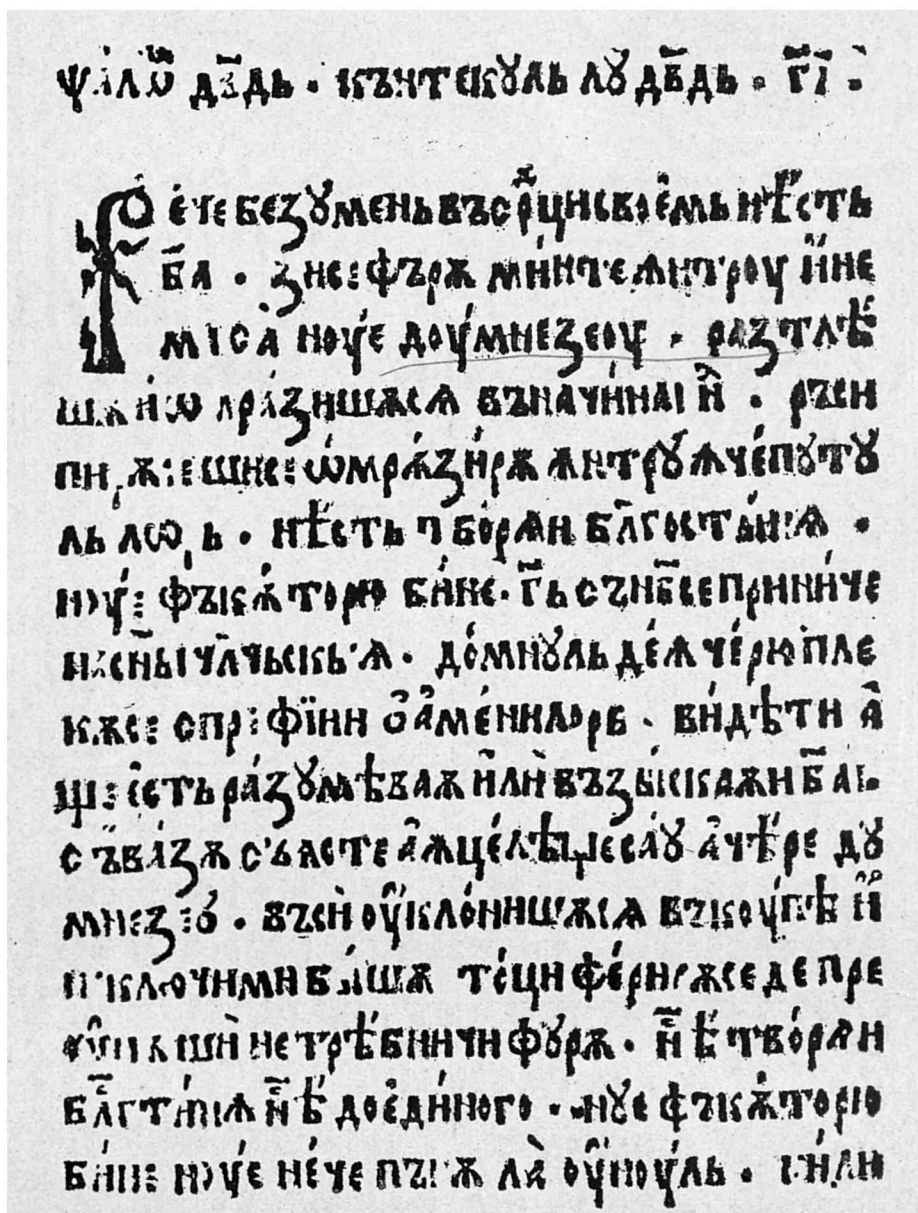 ѱало҄ дв҃дь · кънтекꙋль лꙋ дв҃дь · г҃і ·
Рече безꙋмень въ ср҃ци своемь нѣсть
б҃а · зисе фърѫ минте ѫнтроу ине
миса ноуе доумнезеоу · разтлѣ
шѫ и ѡмразишѫсѧ въ начинаі и҃ · ръси
ѡмрѫзирѫ ѫнтрꙋ ѫчепꙋтꙋ
ль лѡрь · нѣсть творѧи бл҃гостынѧ ·
ноуе фъкѫторю бине · г҃ь съ нб҃се приниче
на сн҃ы чл҃чьскыѧ · домнꙋль деѧ черю плекѫсе спре фїии ѡамениловрь · видѣти а
ще есть разꙋмѣваѫ или възыскаѫи б҃а ·
съ вазѫ съ ѧсте ѫцелѣще саꙋ а чѣре дꙋ
мнезеꙋ · въси оуклонишѫсѧ въкоупѣ и
неключими бышѫ тоци ферирѫсе де пре
оунь ши нетребничи фꙋрѫ · н҃ѣ творѧи
бл҃гтынѧ н҃ѣ до единого · нꙋе фъкѫторю
бине ноуе нече пъръ ла оуноуль ·